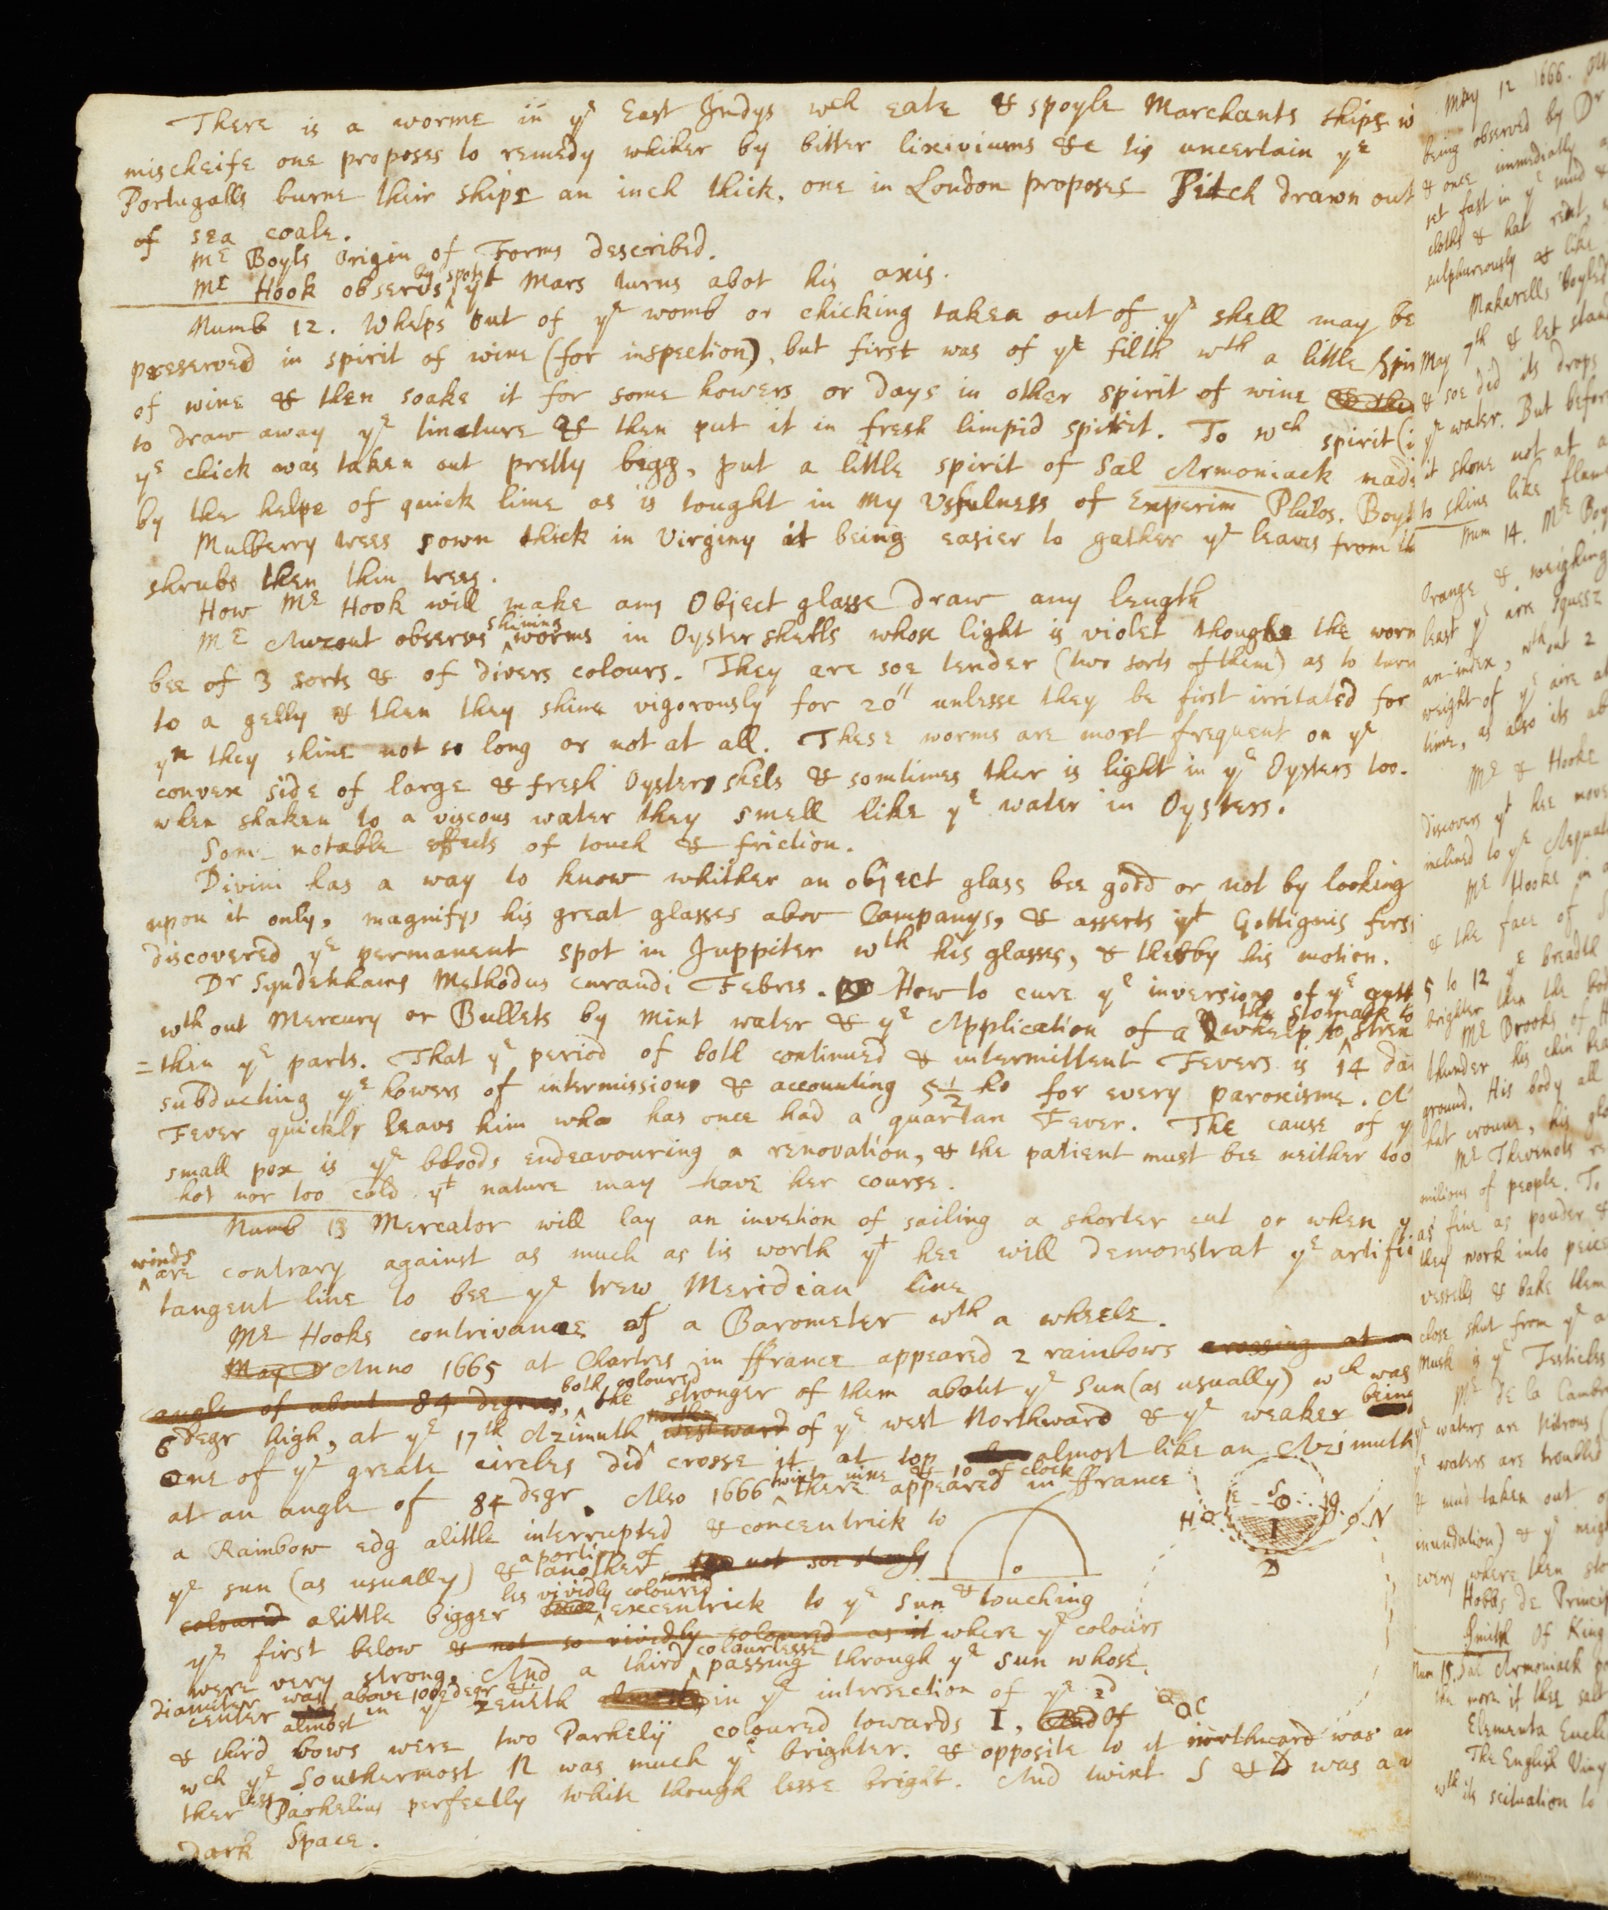 There is a worme in ye East Indys wch eate & spoyle Marchants ships
mischeife one proposes to remedy whither by bitter lixiviums &c tis uncertain ye
Portugalls burne their ships an inch thick. one in London proposes Pitch drawn out
of sea coale.
Mr Boyls Origin of Forms described.
Mr Hook observs by spots yt Mars turns abot his axis.
Numb 12. Whelps out of ye womb or chicking taken out of ye shell may be
preserved in spirit of wine (for inspection), but first was of ye filth wth a little spir
of wine & then soake it for some howers or days in other spirit of wine
to draw away ye tincture & then put it in fresh limpid spirit. To wch spirit (i
ye chick was taken out pretty bigg, put a little spirit of Sal Armoniack made
by the helpe of quick lime as is tought in my Usfulness of Experim Philos. Boyl
Mulberry trees sown thick in Virginy it being easier to gather ye leaves from
shrubs then thin trees.
How Mr Hook will make any Object glasse draw any length
Mr Auzout observes shining worms in Oyster shells whose light is violet though the worm
bee of 3 sorts & of divers colours. They are soe tender (two sorts of them) as to turn
to a gelly & then they shine vigorously for 20" unlesse they be first irritated for
yn they shine not so long or not at all. These worms are most frequent on ye
convex side of large & fresh Oyster shels & somtimes ther is light in ye Oysters too.
when shaken to a viscous water they smell like ye water in Oysters.
Som notable effects of touch & friction.
Divini has a way to know whither an object glass bee good or not by looking
upon it only, magnifys his great glasses abov Campanys, & asserts yt Gottignis first
discovered ye permanent spot in Juppiter wth his glasses, & therby his motion.
Dr Syndenhams Methodus curandi Febres. How to cure ye inversions of ye gutts
wth out Mercury or Bullets by mint water & ye Application of a whelp to the stomack to stren
=then ye parts. That ye period of both continued & intermittent Fevers is 14 da
subducting ye howers of intermissions & accounting 5 1/2 ho for every paroxisme. A
Fever quickly leavs him who has once had a quartan Fever. The cause of y
small pox is ye bloods endeavouring a renovation, & the patient must bee neither too
hot nor too cold yt nature may have her course.
Numb 13 Mercator will lay an invetion of sailing a shorter cut or when y
winds are contrary against as much as tis worth yt hee will demonstrat ye artifi
tangent line to bee ye trew Meridian line
Mr Hooks contrivance of a Barometer wth a wheele.
May Anno 1665 at Chartres in ffrance appeared 2 rainbows crossing at an
angle of about 84 degrees, both coloured the stronger of them about ye Sun (as usually) wch was
6 degr high, at ye 17th Azimuth westward of ye west Northward & ye weaker being
One of ye greate circles did crosse it at top almost like an Azimuth
at an angle of 84 degr. Also 1666 twixt nine & 10 of clock there appeared in ffrance
a Rainbow edg alittle interrupted & concentrick to
ye sun (as usually) & a portion of another not soe
coloured alittle bigger les vividly coloured excentrick to ye sun & touching
ye first below & not so vividly coloured as it where ye colours
were very strong. And a third colourlesse passing through ye sun whose
diameter was above 100 degr &
center almost in ye zenith in ye intersection of ye 2d
& third bows were two Parhelij coloured towards I, Of
wch ye Southermost N was much ye brighter. & opposite to it northward was an
ther less Parhelius perfectly white though lesse bright. And twixt S & D was a
dark Space.
H E S I N D C
May 12 1666.
being observed by Dr
& once immediatly
set fast in ye mud &
cloths & hat rent,
sulphureously & like
Makarells boyled
May 7th & let stand
& soe did its drops
ye water. But before
it shone not at a
to shine like flame
Num 14. Mr Boy
Orange & weighing
least ye aire squeez
an index, wthout 2
weight of ye aire
time, as also its ab
Mr Hooke
discovers yt hee moves
inclined to ye Aequat
Mr Hooke in
& the face of
5 to 12 ye breadth
brighter then the bod
Mr Brooks of H
thunder his chin
ground. His body all
hat crowne, his glo
Mr Thevenots re
milions of people. To
as fine as pouder &
they work into peices
vessells & bake them
close shut from ye a
Musk is ye Testicles
Mr de la Cambre
ye waters are Nitrous
ye waters are troubled
& mud taken out of
inundation) & ye neigh
every where then
Hobbs de Princip
Smith Of King
Num 15. Sal Armoniack
the more if thes salt
Elementa Eucli
The English Viny
wth its scituation to